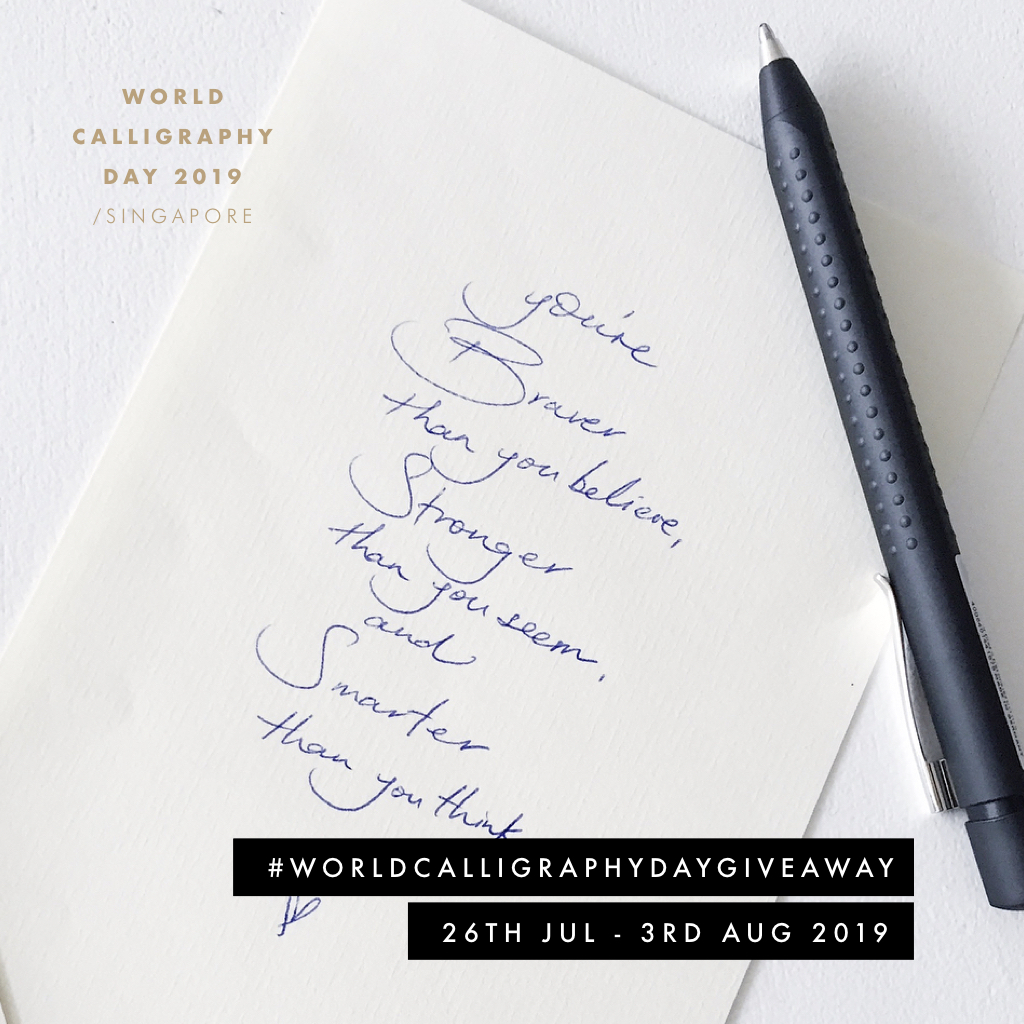 WORLD
CALLIGRAPHY
DAY 2019
/SINGAPORE
you're
Braver
than you believe,
Stronger
than you seem,
and
Smarter
than you think
#WORLDCALLIGRAPHYDAYGIVEAWAY
26TH JUL - 3RD AUG 2019